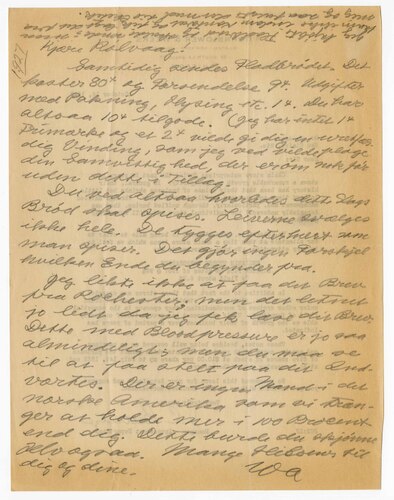 1927
Kjære Rølvaag!
Samtidig sendes Fladbrødet. Det
koster 80¢ og Forsendelse 9¢. Utgifter
med Pakning, Flysing etc. 1¢. Du har
altsaa 10¢ tilgode. (Jeg har intet 1¢
Frimærke og et 2¢ vilde gi dig en uretfær-
dig Vinding, som jeg ved vilde plage
din Samvittighed, der er øm nok før
uden dette i Tillæg.
Du ved altsaa hvorledes dette Slags
Brød skal spises. Leiverne svælges
ikke hele. De tygges eftersom
man spiser. Det gjør ingen Forskjel
hvilken Ende du begynder fra.
Jeg likte ikke at faa dit Brev
fra Rochester, men det letnet
jo lidt da jeg fik læse dit Brev.
Dette med Bloodpressure er jo saa
almindeligt, men du maa se
til at faa stelt paa dit Ind-
vortes. Der er ingen Mand i det
norske Amerika som vi træn-
ger at holde mer i 100 Procent
end dig. Dette burde du skjønne
selv ogsaa. Mange Hilsener til
dig og dine.
WA